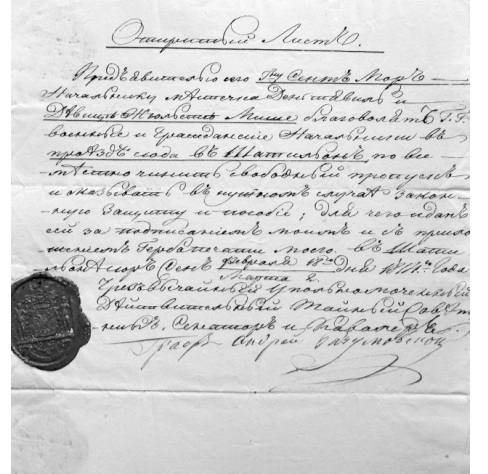 Открытый Листъ.
Предъявителю сего Гну Сентъ Моръ
Начальнику мѣстечка и
Дѣвицѣ Жюльетъ Мише благоволятъ Г. Г.
военные и Гражданскіе Начальники въ
проѣздѣ сюда въ Шатильонъ по все-
мѣстно чинить свободный пропускъ
и оказывать въ нужномъ случаѣ закон-
ную защиту и пособіе; для чего и данъ
сей за подписаніемъ моимъ и съ прило-
женіемъ Герба печати моего. въ Шати-
льонѣ Сюръ Сенъ Февраля 18го дня 1814го года
Марта 2.
Чрезвычайный Уполномоченный
Дѣйствительный Тайный Совѣт-
никъ, Сенаторъ и Кавалеръ.
Графъ Андрей Разумовской